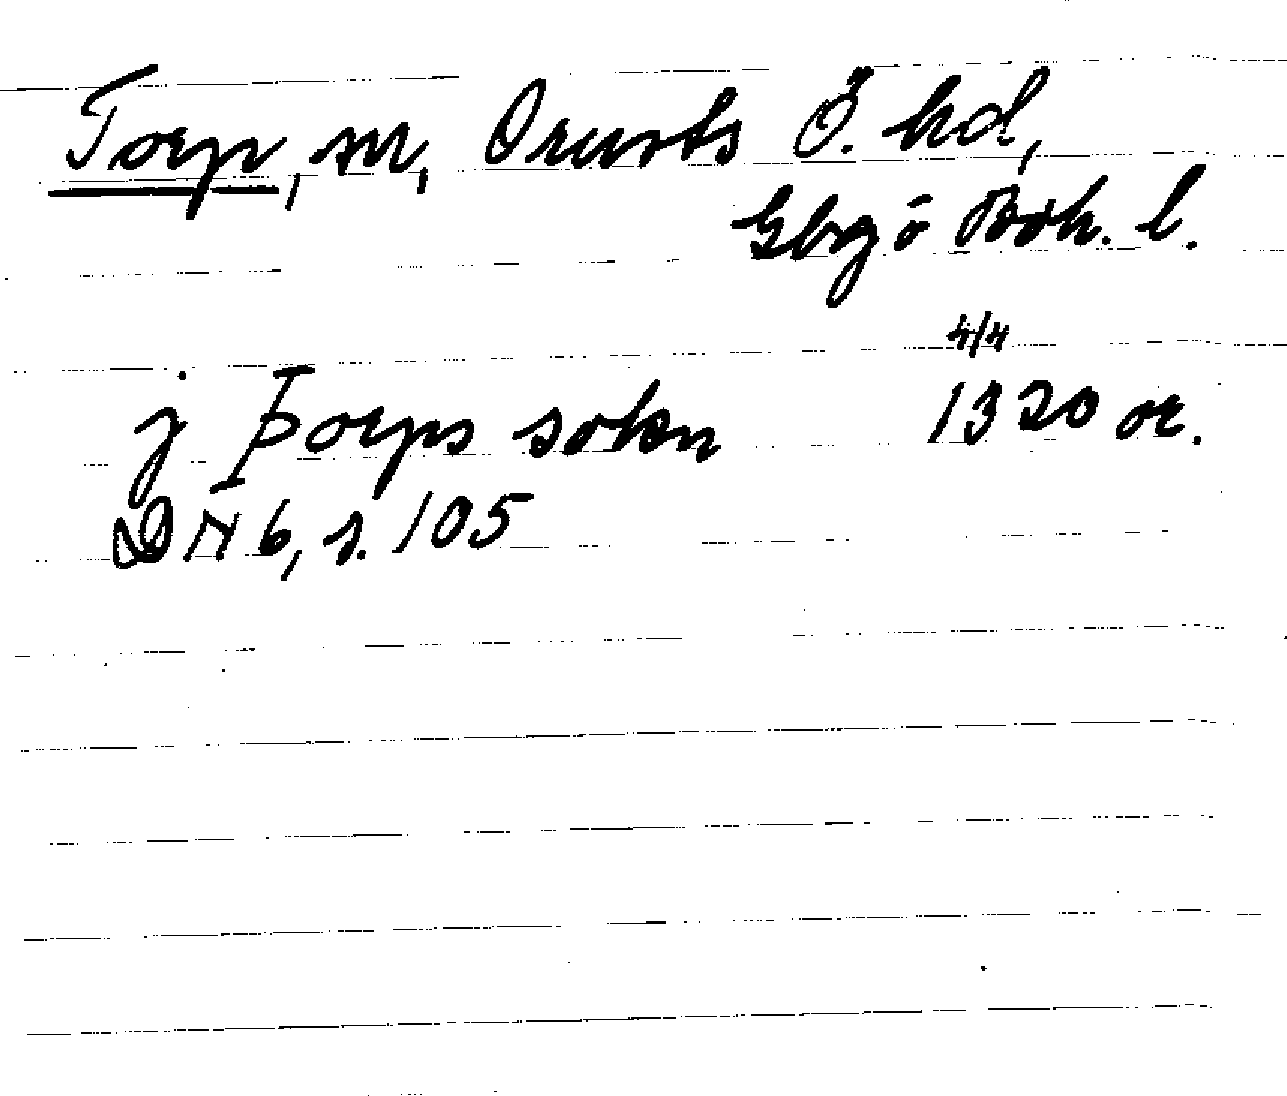 Torp, sn, Orusts Ö. hd,
Gbg o Boh. l.
4/4
j Þorps sokn 1320 or.
DN 6, s. 105